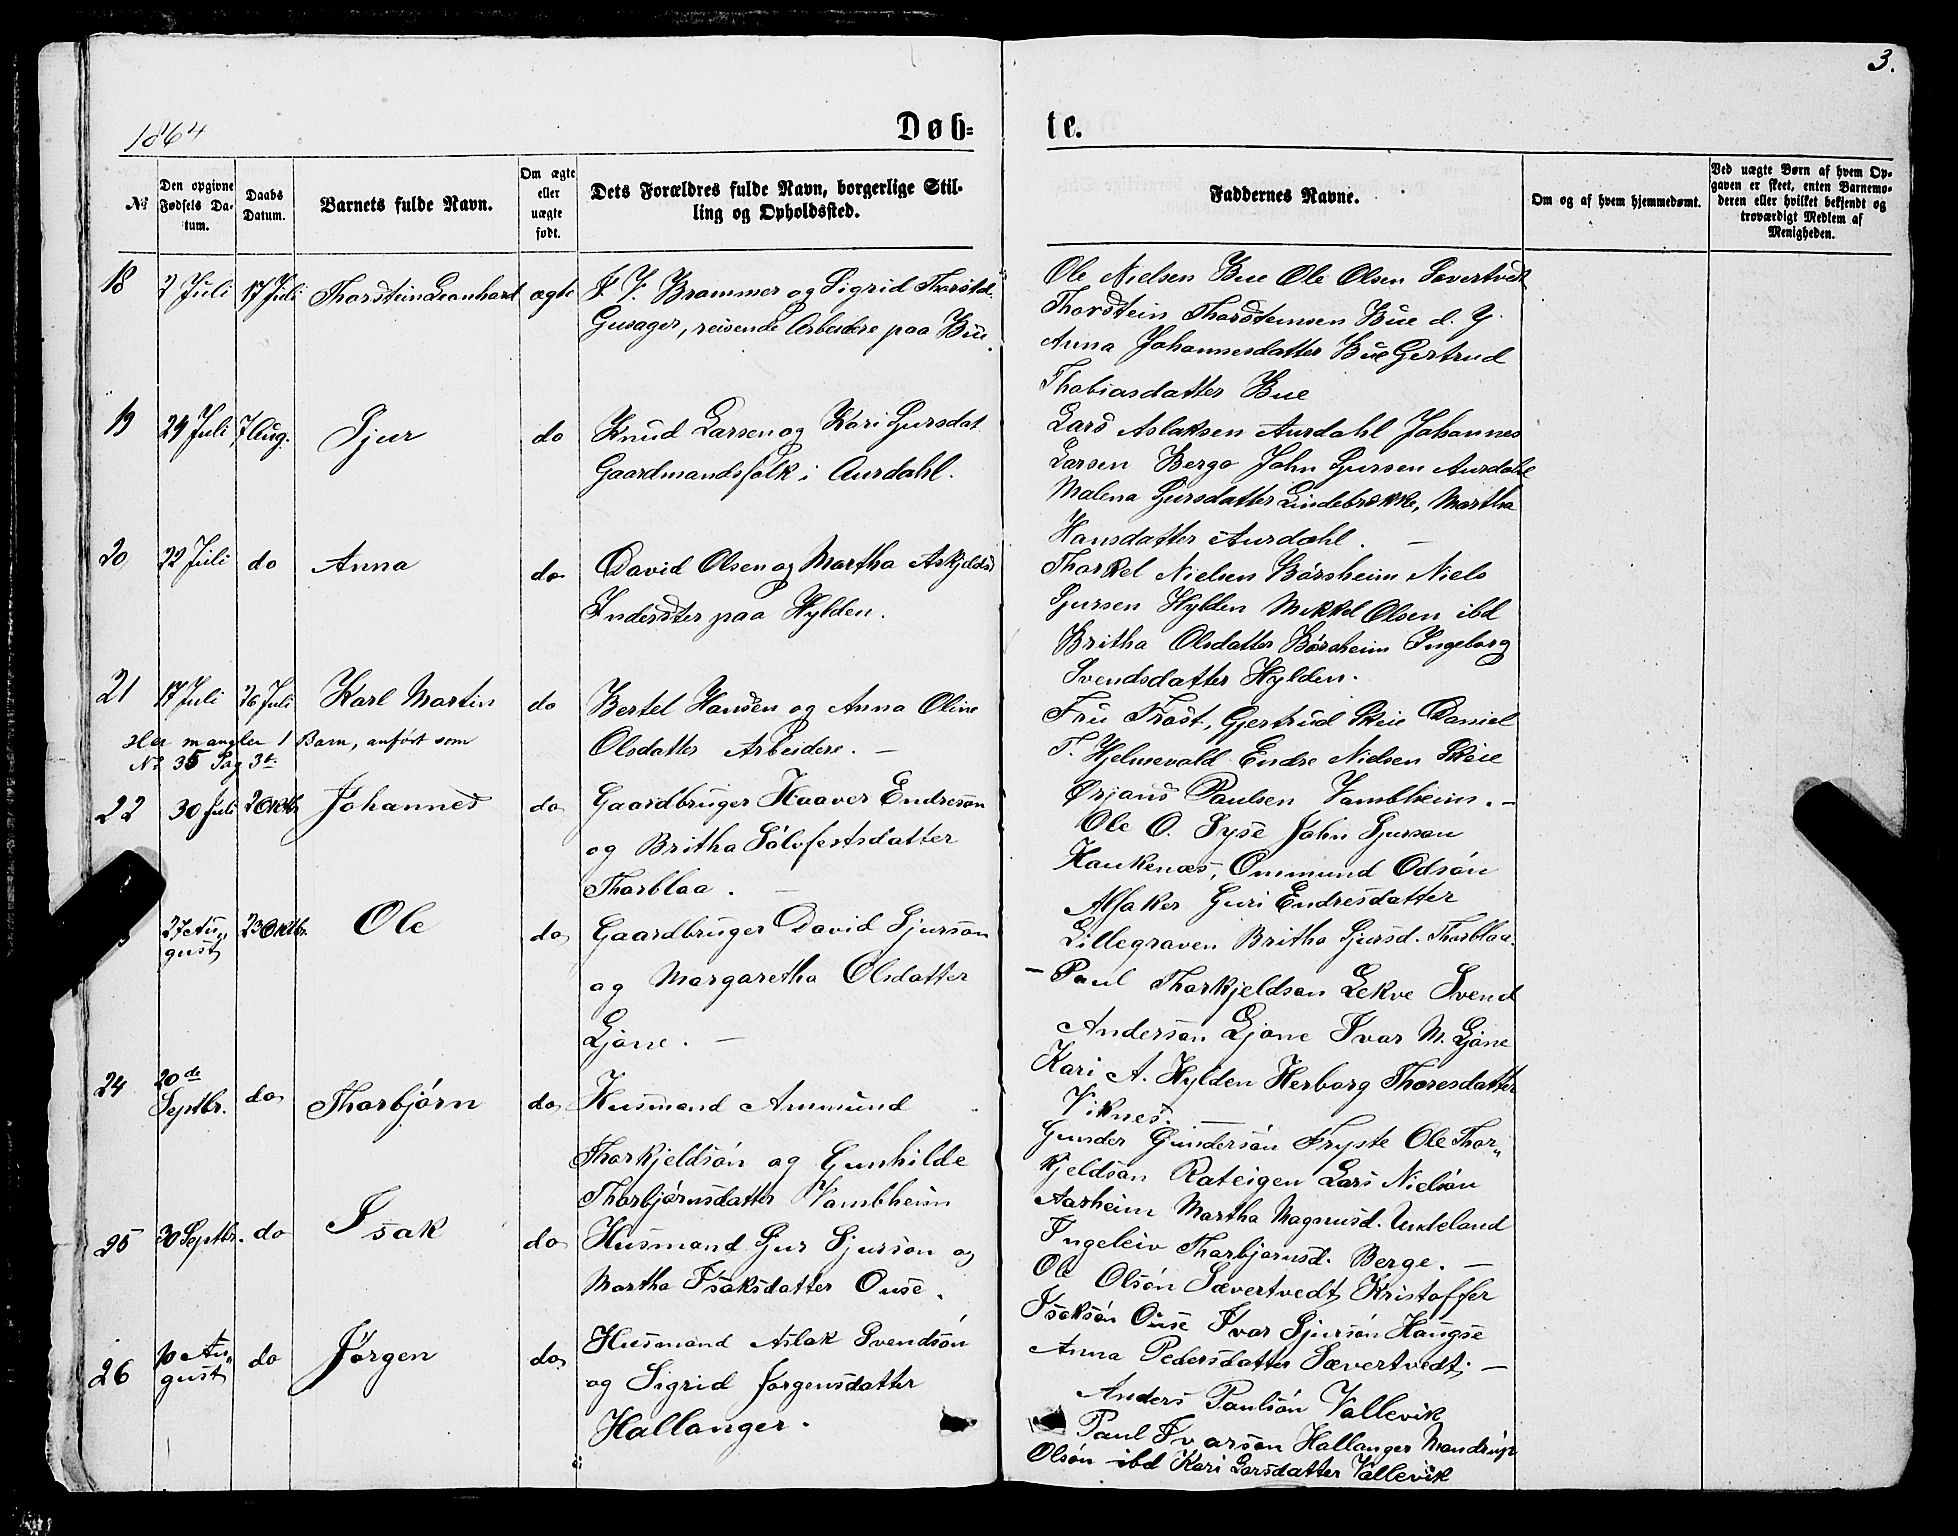 3.
1864
Døb=
te.
№
Den opgivne Fødsels Datum.
Daabs Datum.
Barnets fulde Navn.
Om ægte eller uægte født.
Dets Forældres fulde Navn, borgerlige Stilling og Opholdssted.
Faddernes Navne.
Om og af hvem hjemmedøbt.
Ved uægte Børn af hvem Opgaven er skeet, enten Barnemoderen eller hvilket bekjendt og troværdigt Medlem af Menigheden.
18 2 Juli 17 Juli Thorstein Leonhard ægte
Brammer og Sigrid Thorstd.
Gusager, reisende Arbeidere paa Bue.
Ole Nielsen Bue Ole Olsen Severtvedt
Thorstein Thorsteinsen Bue d. Y.
Anna Johannesdatter Bue Gertrud
Thobiasdatter Bue
19 24 Juli 7 Aug. Sjur do
Knud Larsen og Kari Sjursdat
Gaardmandsfolk i Aurdahl.
Lars Aslaksen Aurdahl Johannes
Larsen Berge John Sjursen Aurdahl
Malena Sjursdatter Lindebrække, Martha
Hansdatter Aurdahl. —
20 22 Juli do Anna do
David Olsen og Martha Askjeldsd
Inderster paa Hylden.
Thorkel Nielsen Børsheim Niels
Sjursen Hylden Mikkel Olsen ibd
Britha Olsdatter Børsheim Ingeborg
Svendsdatter Hylden.
21 17 Juli 26 Juli Karl Martin do
Bertel Hansen og Anna Oline
Olsdatter Arbeidere. —
Fru Frost, Gjertrud Skeie Daniel
T. Hjelmevold Endre Nielsen Skeie
Ørjans Paulsen Vambheim. —
Her mangler 1 Barn, anført som
No 35 Pag 3
22 30 Juli 2 Oktbr Johannes do
Gaardbruger Haaver Endreson
og Britha Sølvfestsdatter
Thorblaa. —
Ole O. Syse John Sjurson
Haukenæs, Ommund Odsøn
Alsaker Guri Endresdatter
Lillegraven Britha Sjursd. Thorblaa.
27 August 23 Oktbr. Ole do
Gaardbruger David Sjurson
og Margaretha Olsdatter
Ljone. —
— Paul Thorkjeldson Lekve Svend
Anderson Ljone Ivar M. Ljone
Kari A. Hylden Herborg Thoresdatter
Viknes. —
24 20de Septbr. do Thorbjørn do
Husmand Ammund
Thorkjeldsøn og Gunhilde
Thorbjørnsdatter Vambheim
Gunder Gundersøn Tryste Ole Thor„
kjeldsøn Rateigen Lars Nielsøn
Aarheim Martha Magnusd. Undeland
Ingeleiv Thorbjørnsd. Berge. —
25 30 Septbr. do Isak do
Husmand Sjur Sjurson og
Martha Isaksdatter Ouse.
Ole Olsøn Sævertvedt, Kristoffer
Isaksøn Ouse Ivar Sjursøn Haugse
Anna Pedersdatter Sævertvedt. —
26 10 August do Jørgen do
Husmand Aslak Svendsøn
og Sigrid Jørgensdatter
Hallanger.
Anders Paulsøn Vallevik
Paul Ivarsøn Hallanger Mandrup
Olsøn ibd Kari Larsdatter Vallevik